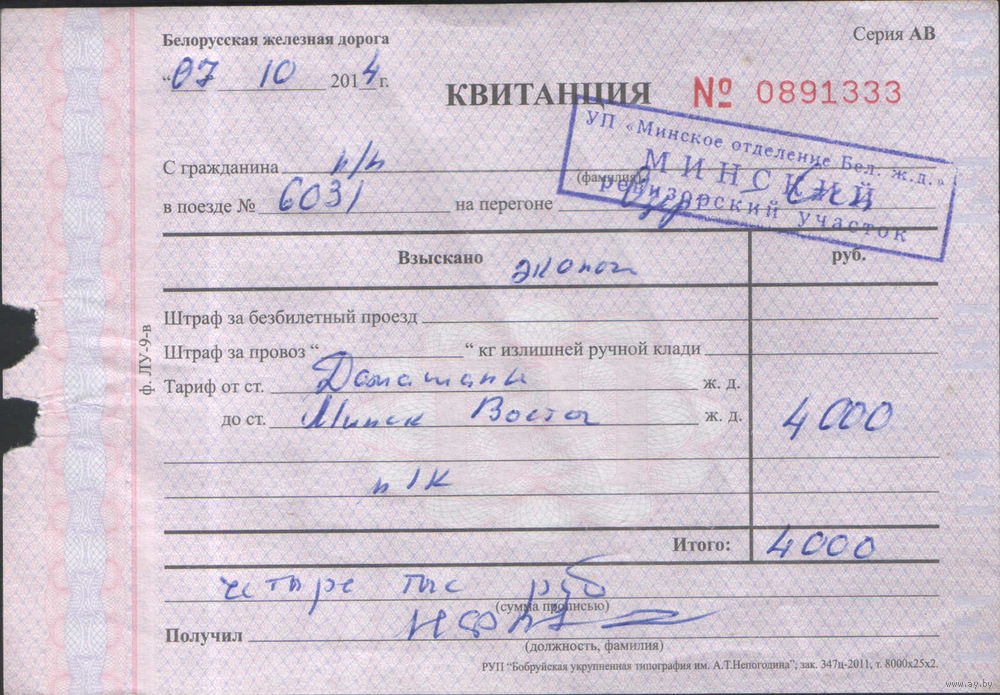 Белорусская железная дорога
Серия АВ
“07 10 2014 г.
КВИТАНЦИЯ № 0891333
УП «Минское отделение Бел. ж.д.»
МИНСКИЙ
ревизорский участок
С гражданина п/п
(фамилия)
в поезде № 6031 на перегоне
Взыскано руб.
Штраф за безбилетный проезд
Штраф за провоз “ “ кг излишней ручной клади
Тариф от ст. ж. д.
до ст. Минск Восточ ж. д. 4000
ф. ЛУ-9-в
Итого: 4000
четыре тыс руб
(сумма прописью)
Получил
(должность, фамилия)
РУП “Бобруйская укрупненная типография им. А.Т.Непогодина”; зак. 347ц-2011, т. 8000х25х2.
www.ay.by